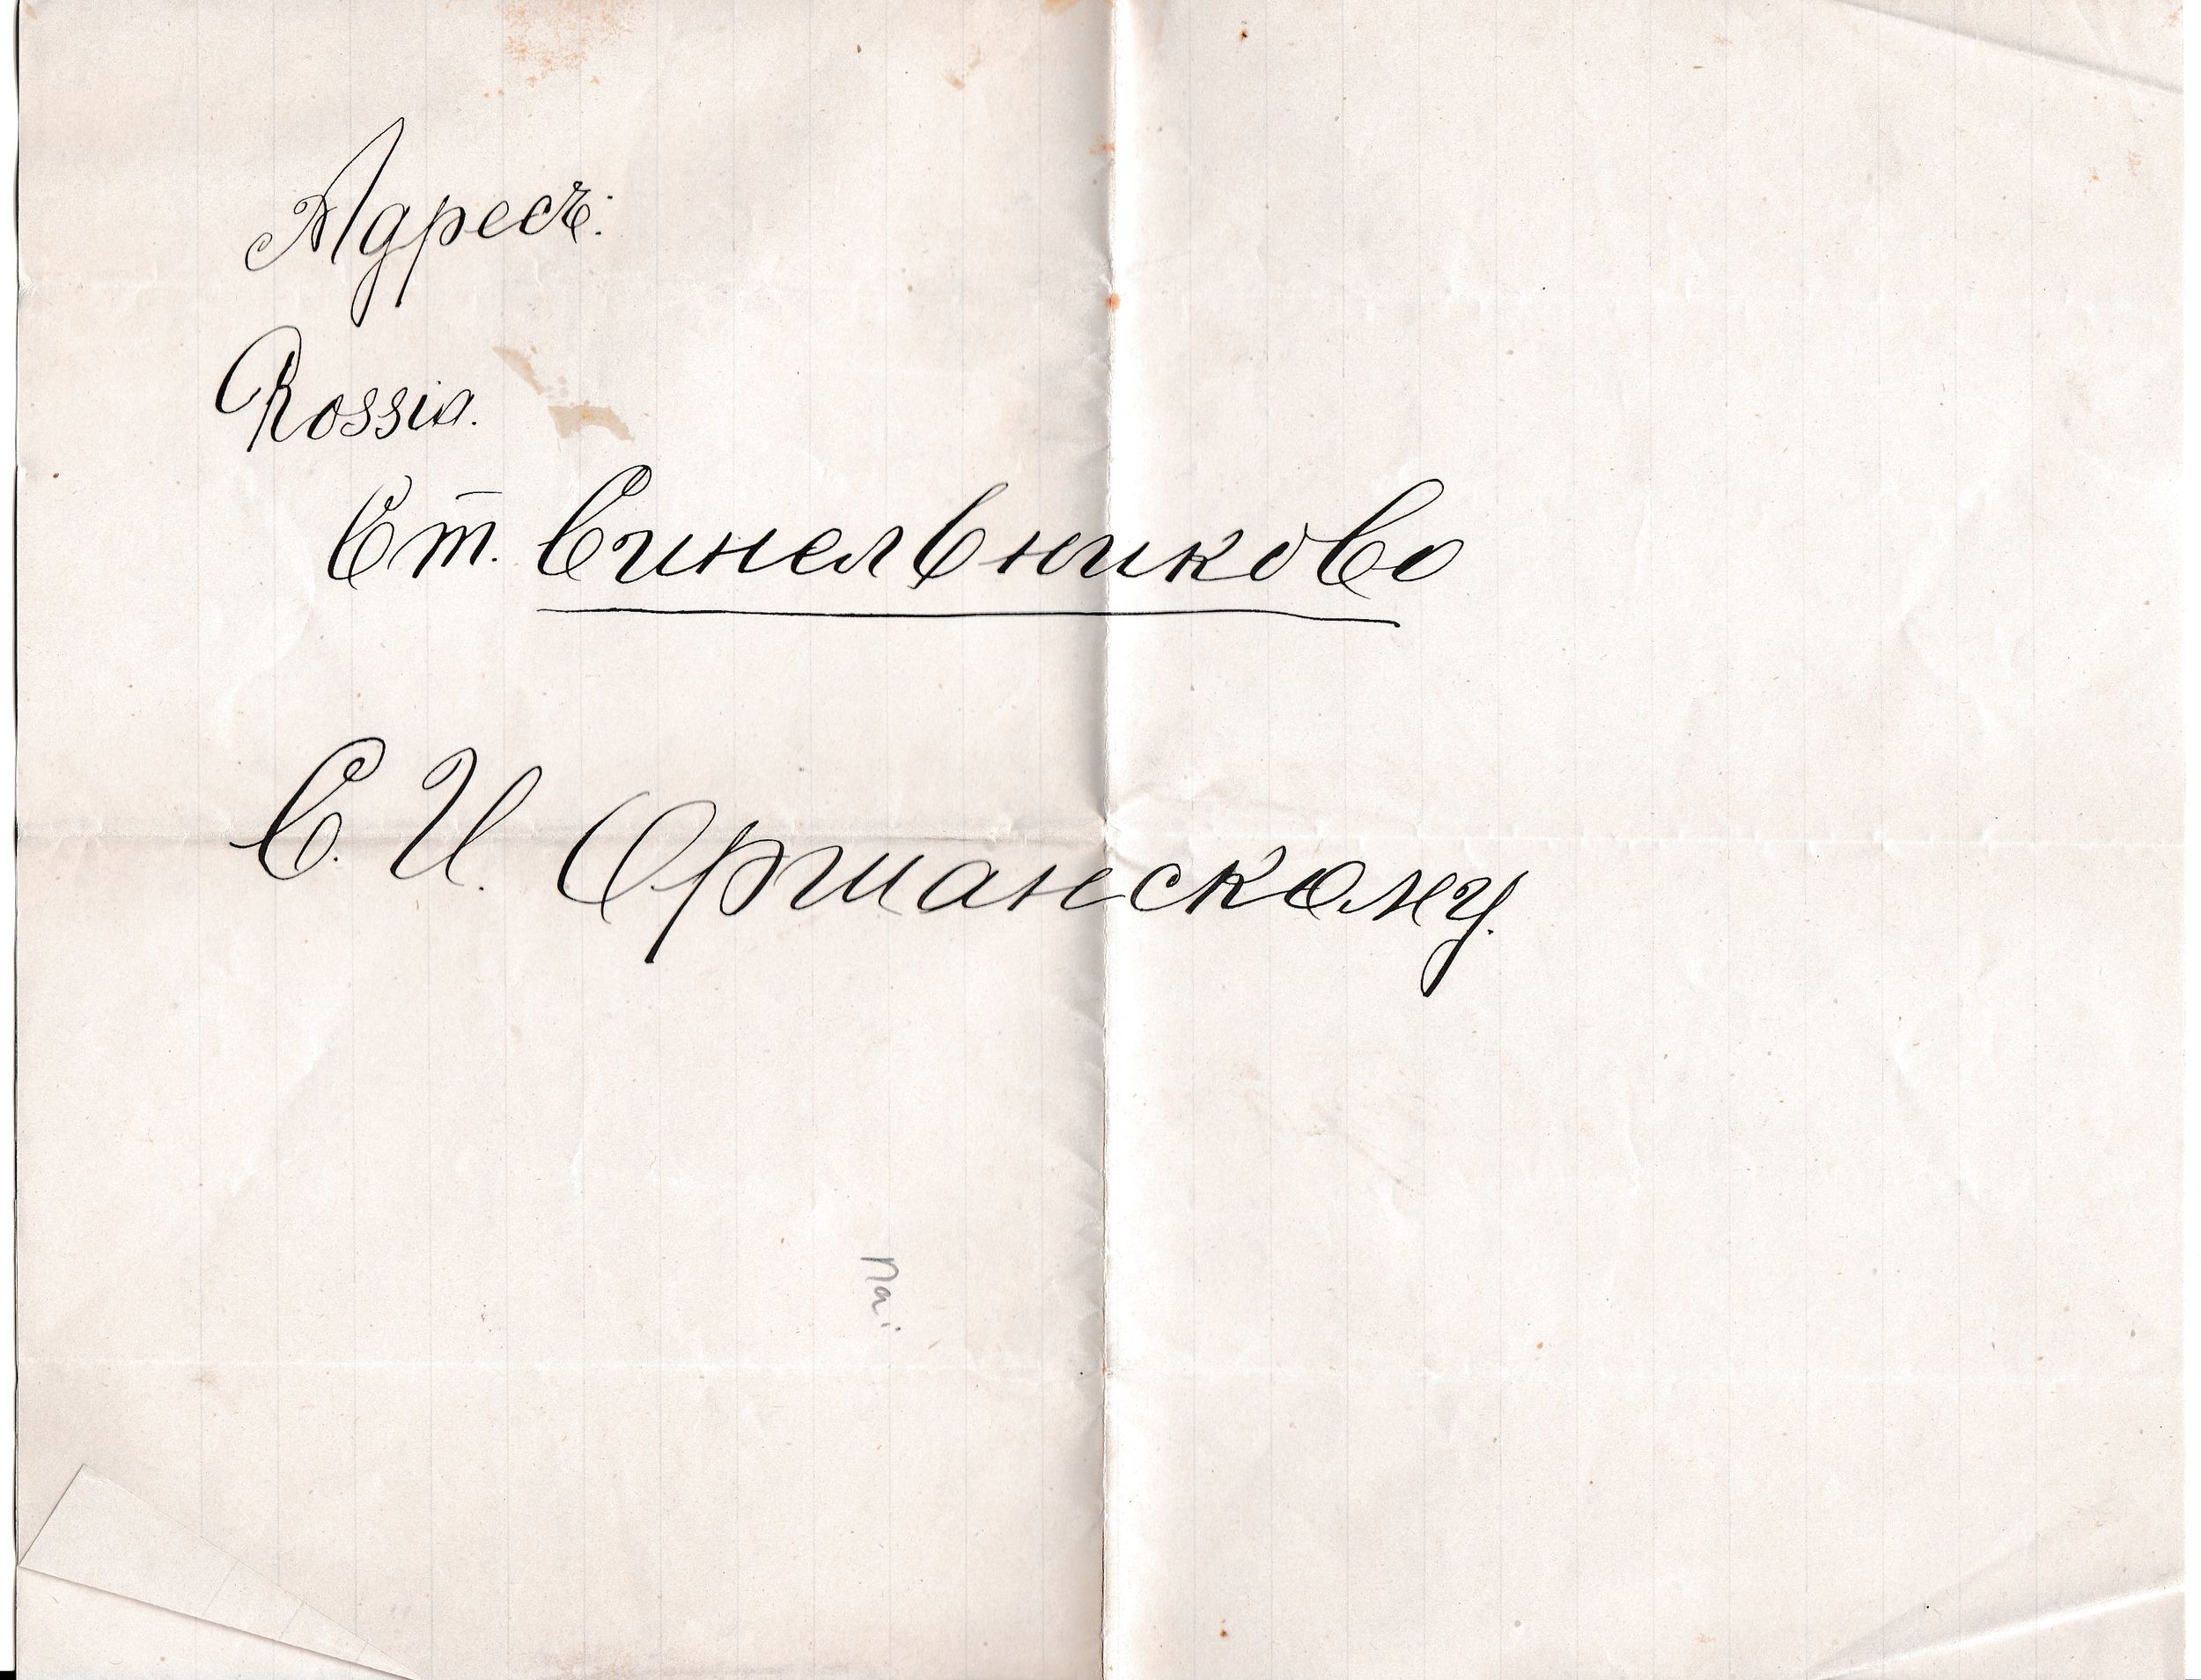 Адресъ:
Rossia.
Ст. Синельниково
С. И. Оршанскому.